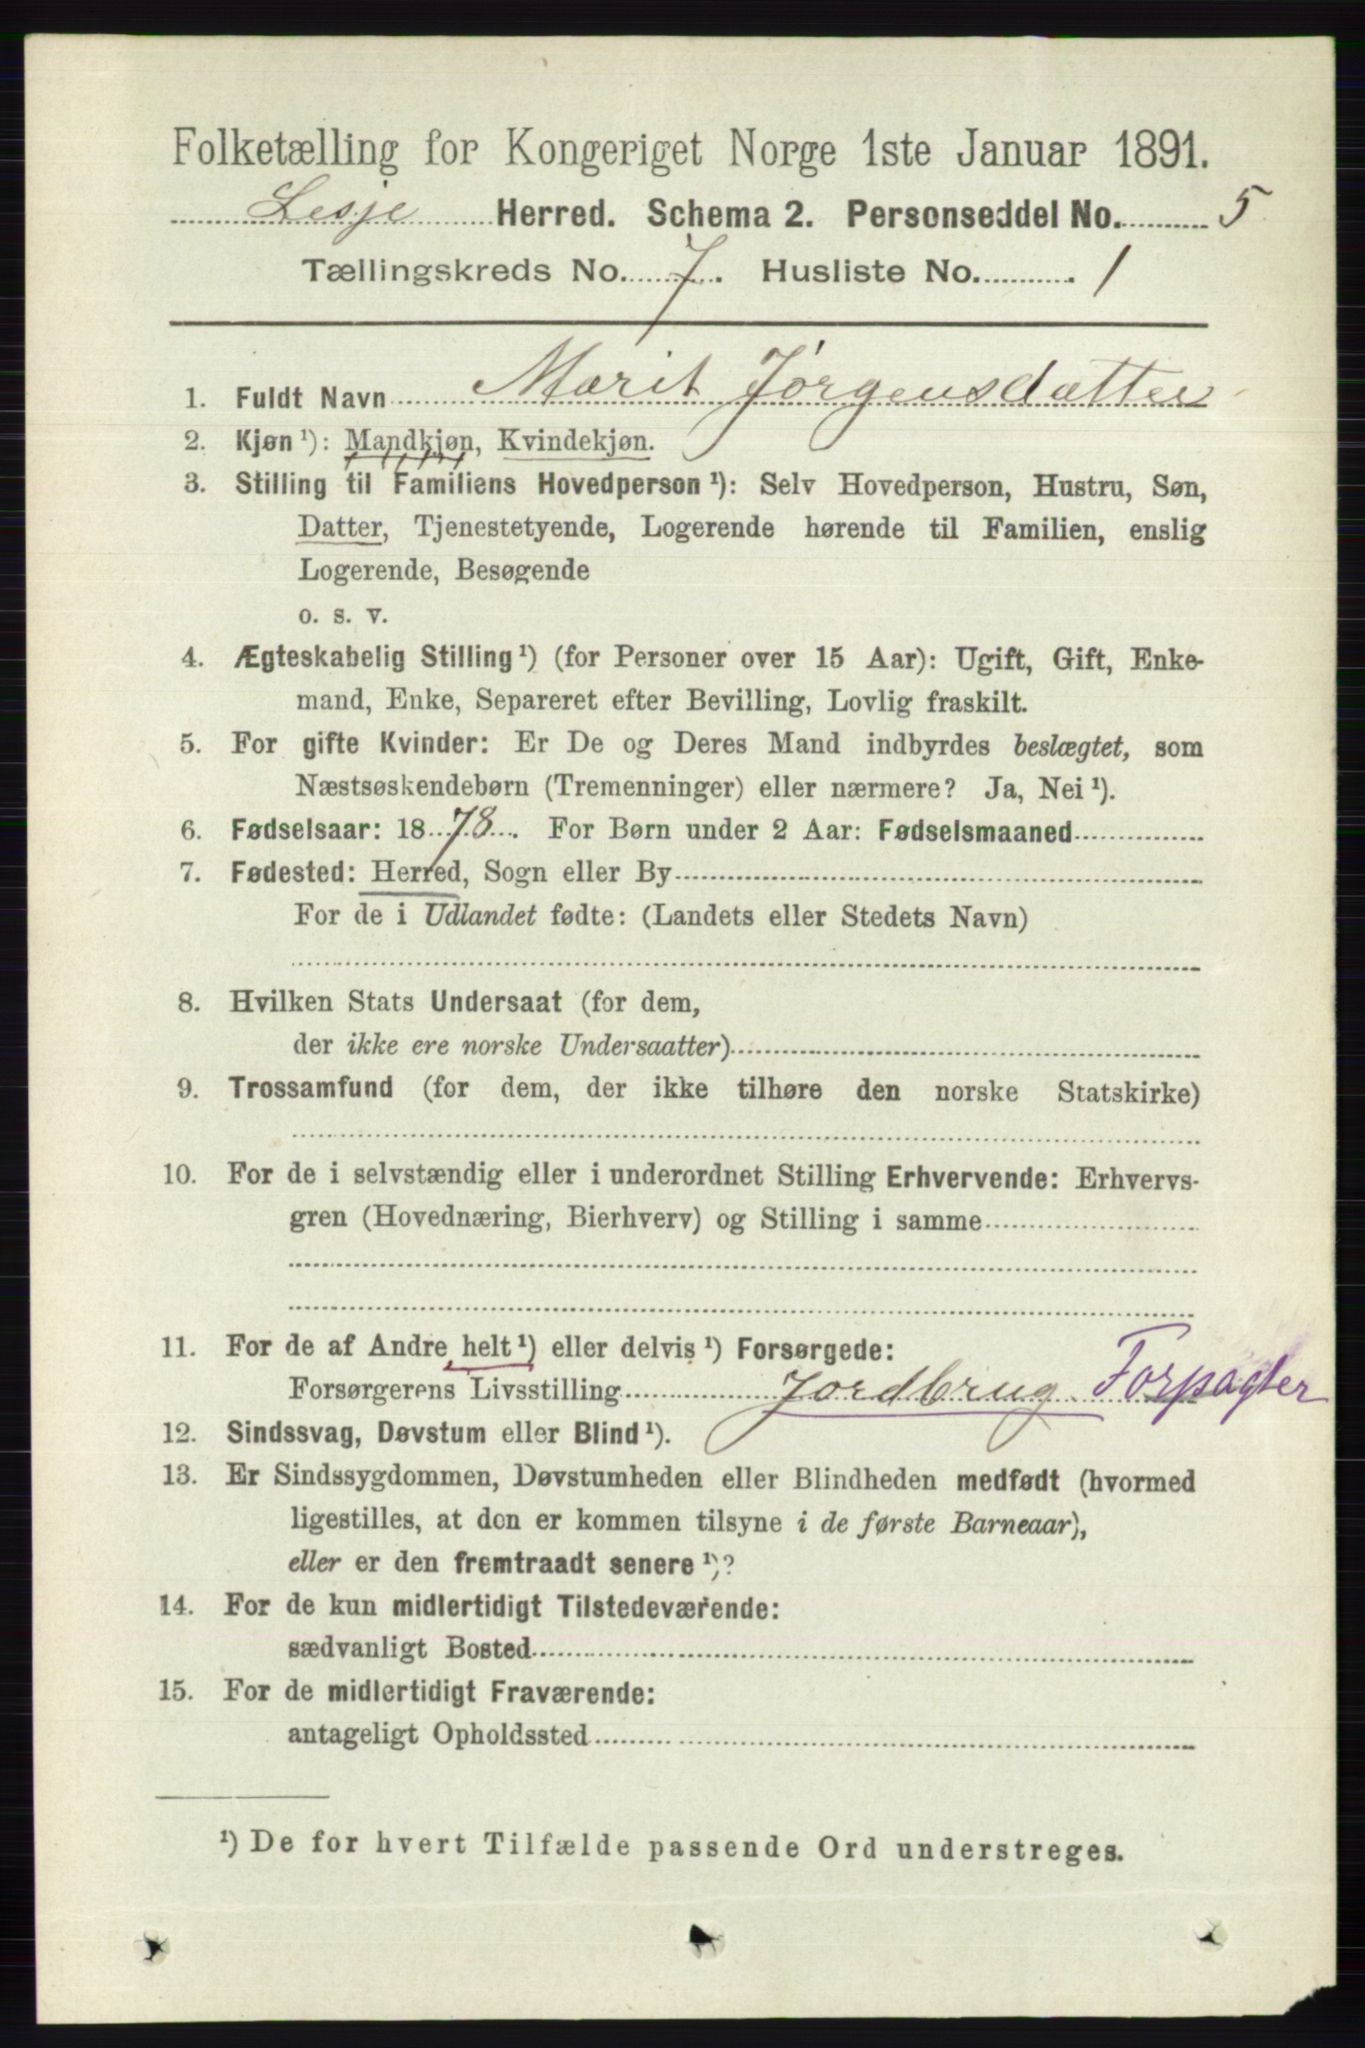 Folketælling for Kongeriget Norge 1ste Januar 1891.
Lesje Herred. Schema 2. Personseddel No. 5
Tællingskreds No. 7. Husliste No. 1
1. Fuldt Navn Marit Jørgensdatter
2. Kjøn ¹): Mandkjøn, Kvindekjøn.
3. Stilling til Familiens Hovedperson ¹): Selv Hovedperson, Hustru, Søn,
Datter, Tjenestetyende, Logerende hørende til Familien, enslig
Logerende, Besøgende
o. s. v.
4. Ægteskabelig Stilling ¹) (for Personer over 15 Aar): Ugift, Gift, Enke-
mand, Enke, Separeret efter Bevilling, Lovlig fraskilt.
5. For gifte Kvinder: Er De og Deres Mand indbyrdes beslægtet, som
Næstsøskendebørn (Tremenninger) eller nærmere? Ja, Nei ¹).
6. Fødselsaar: 1878. For Børn under 2 Aar: Fødselsmaaned
7. Fødested: Herred, Sogn eller By
For de i Udlandet fødte: (Landets eller Stedets Navn)
8. Hvilken Stats Undersaat (for dem,
der ikke ere norske Undersaatter)
9. Trossamfund (for dem, der ikke tilhøre den norske Statskirke)
10. For de i selvstændig eller i underordnet Stilling Erhvervende: Erhvervs-
gren (Hovednæring, Bierhverv) og Stilling i samme
11. For de af Andre helt ¹) eller delvis ¹) Forsørgede:
Forsørgerens Livsstilling Jordbrug Forpagter
12. Sindssvag, Døvstum eller Blind ¹).
13. Er Sindssygdommen, Døvstumheden eller Blindheden medfødt (hvormed
ligestilles, at den er kommen tilsyne i de første Barneaar),
eller er den fremtraadt senere ¹)?
14. For de kun midlertidigt Tilstedeværende:
sædvanligt Bosted
15. For de midlertidigt Fraværende:
antageligt Opholdssted
¹) De for hvert Tilfælde passende Ord understreges.